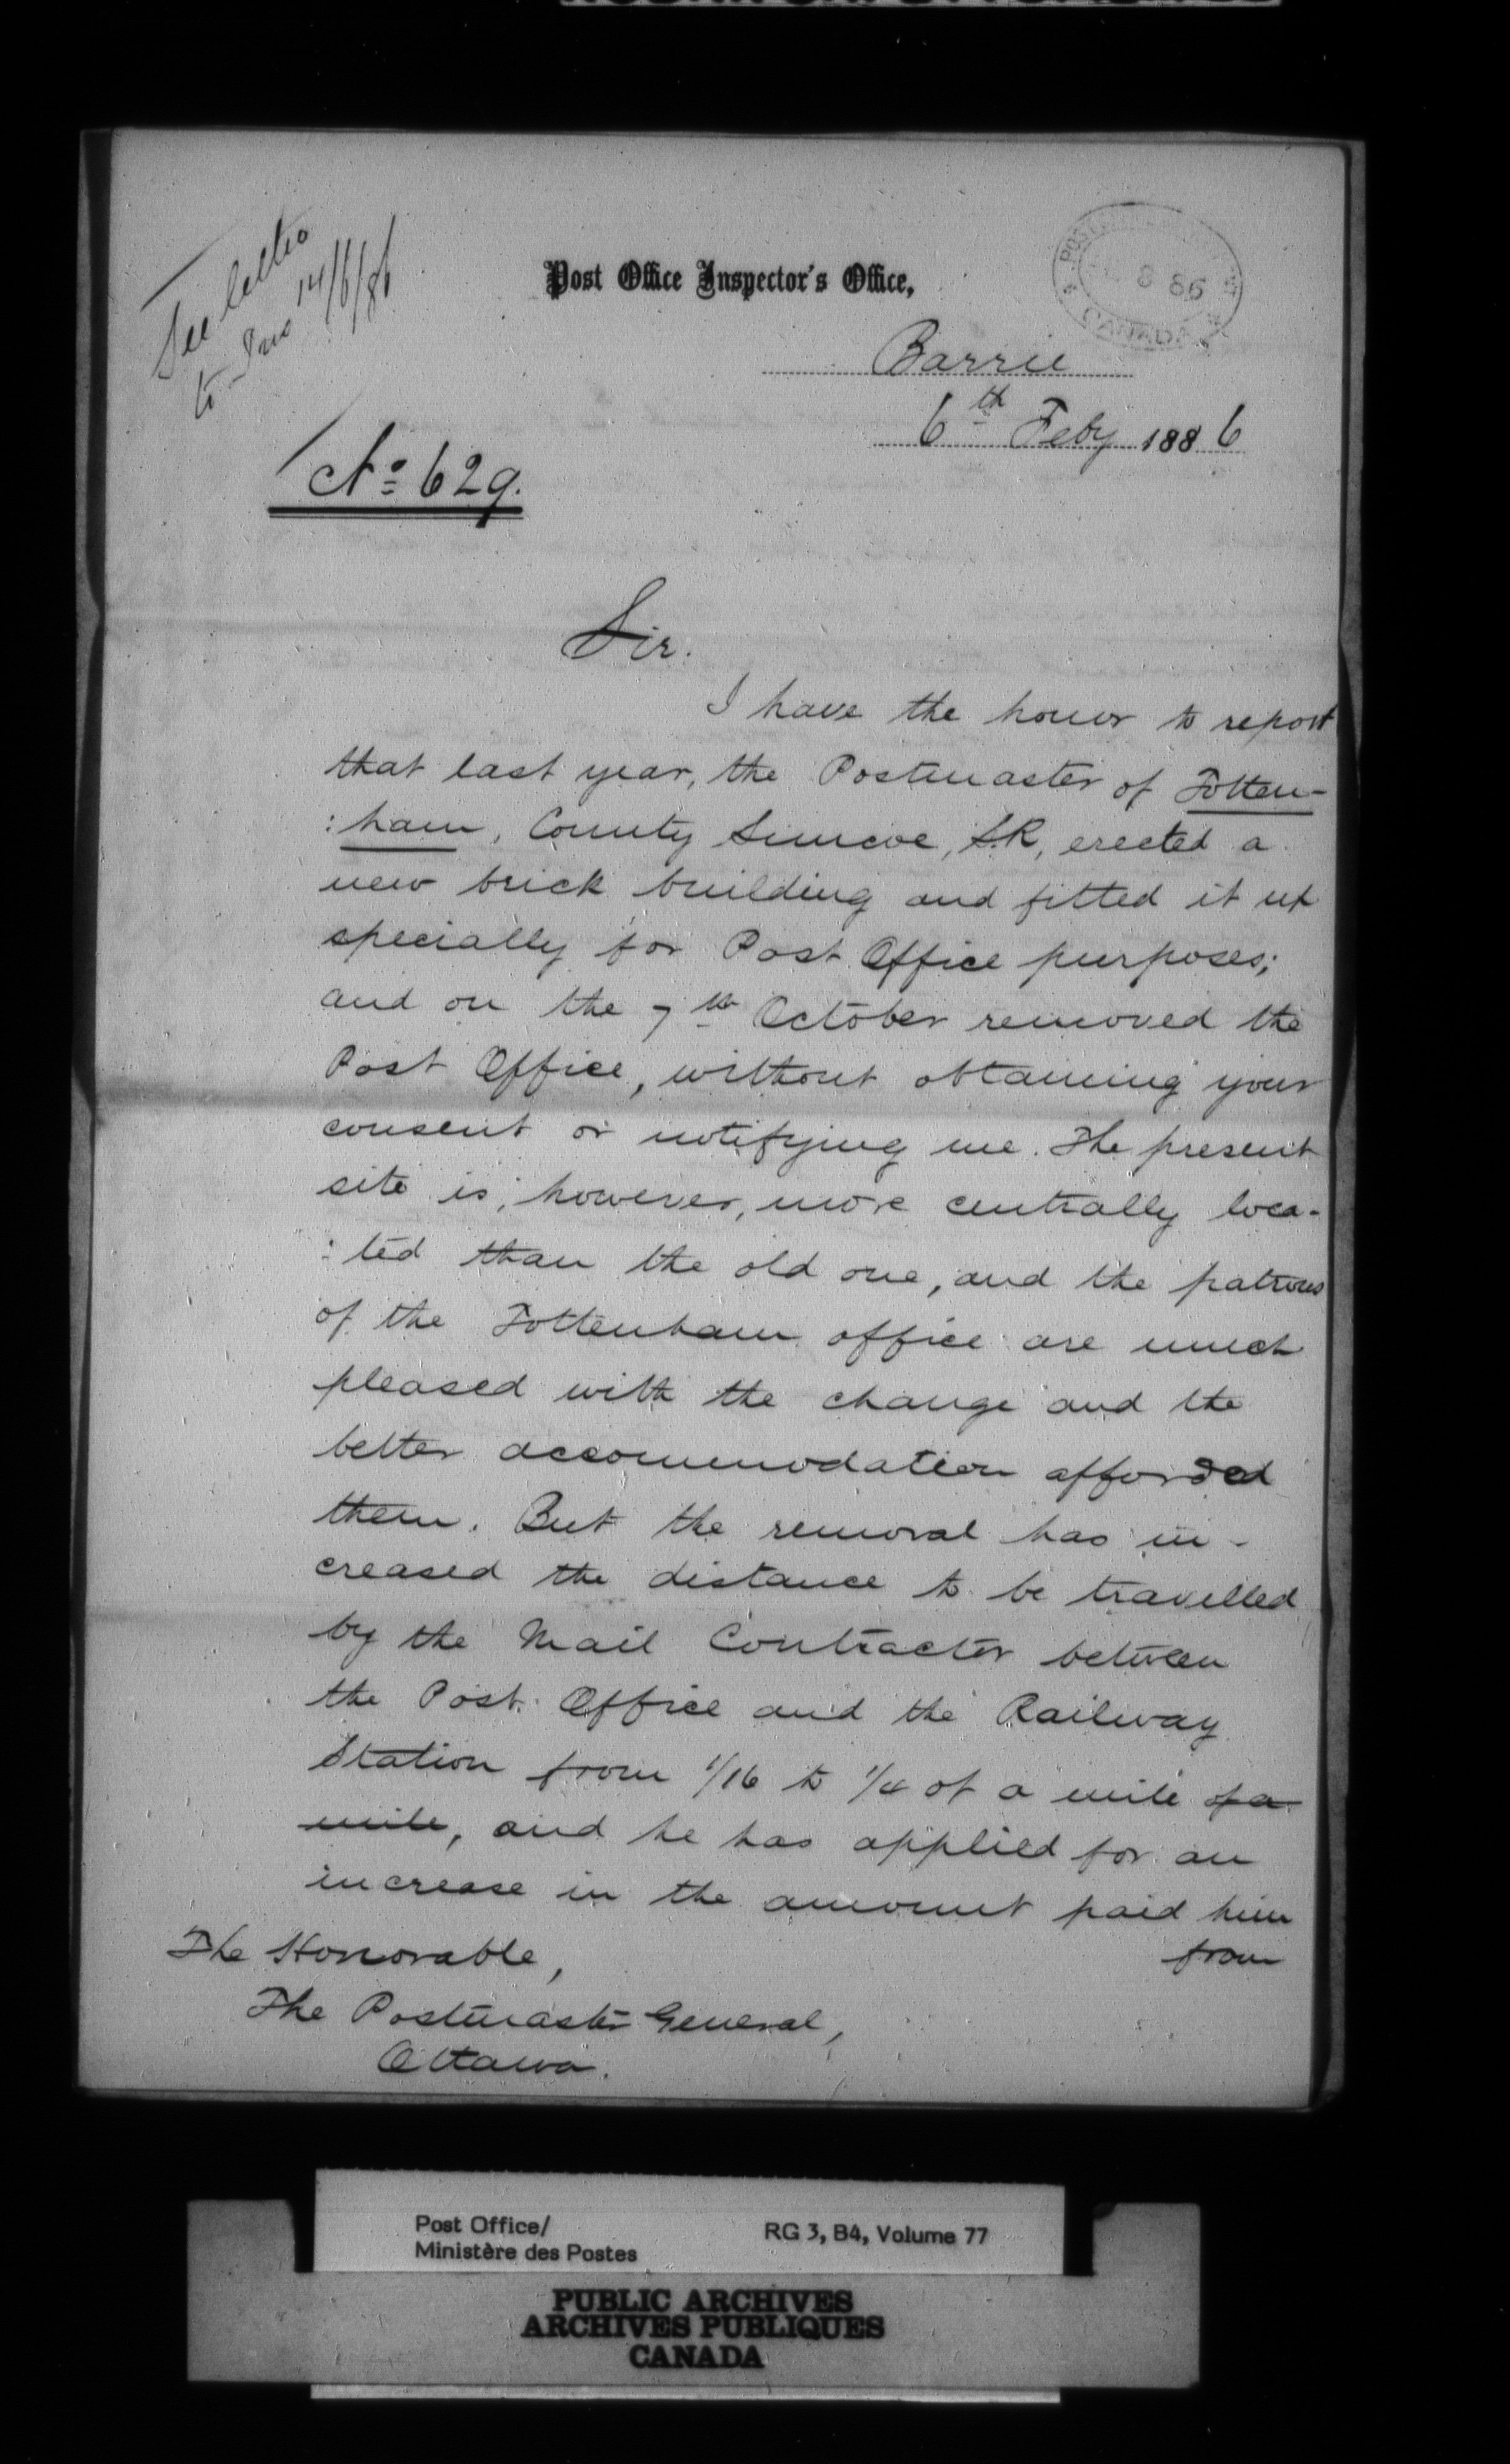 See letter
to Ins 14/6/86
Post Office Inspector's Office,
8 86
CANADA
Barrie
6th Feby 1886
No 629.
Sir.
I have the honor to report
that last year, the Postmaster of Totten-
:ham, County Simcoe, S.R, erected a
new brick building and fitted it up
specially for Post Office purposes;
and on the 7th October removed the
Post Office, without obtaining your
consent or notifying me. The present
site is, however, more centrally loca-
:ted than the old one, and the patrons
of the Tottenham office are much
pleased with the change and the
better accommodation afforded
them. But the removal has in-
creased the distance to be travelled
by the Mail Contractor between
the Post Office and the Railway
Station from 1/16 to 1/4 of a mile of a
mile, and he has applied for an
increase in the amount paid him
from
The Honorable,
The Postmaster General,
Ottawa.
Post Office/
Ministère des Postes
RG 3, B4, Volume 77
PUBLIC ARCHIVES
ARCHIVES PUBLIQUES
CANADA